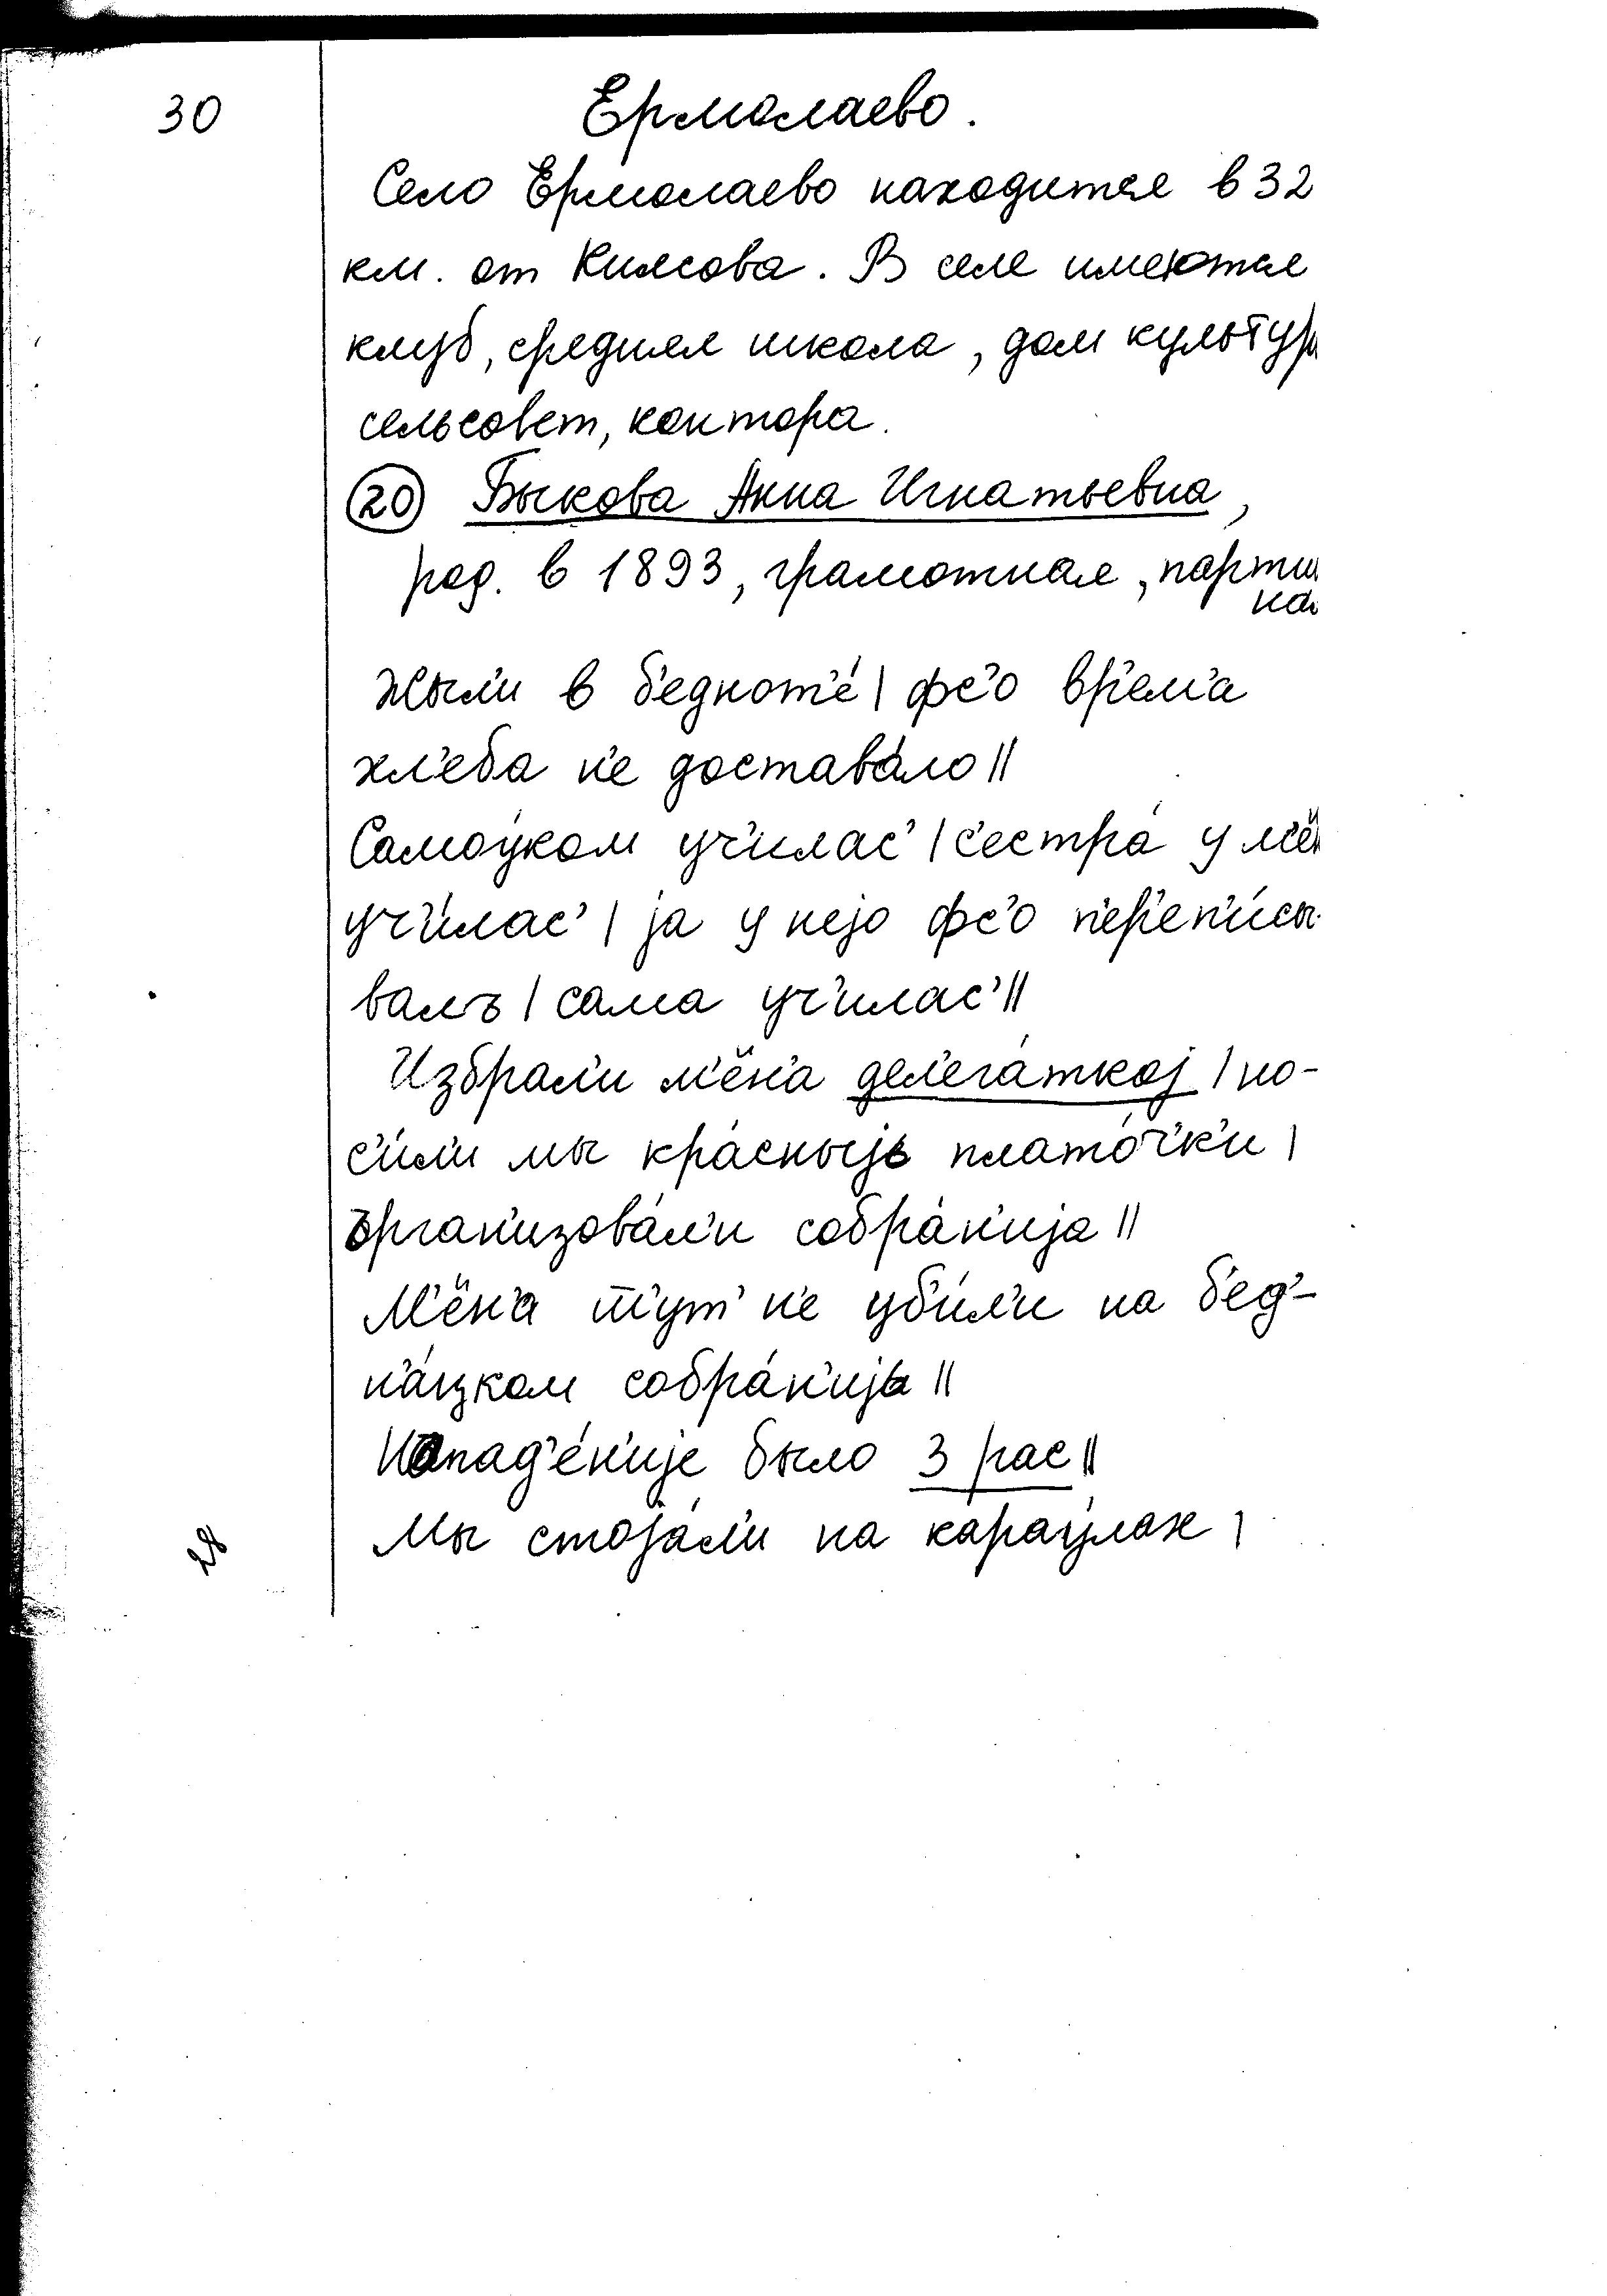 30
Ермолаево.
Село Ермолаево находится в 32
км. от Килсова. В селе имеются
клуб, средняя школа, дом культур
сельсовет, контора.
20 Быкова Анна Игнатьевна,
род. в 1893, грамотная, парти
ная
Жыл'и в б'еднот'е́ | фс'о вр'ем'а
хл'еба н'е достава́ло ||
Само́уком уч'илас' | с'естра́ у м'ён
уч'и́лас' | jа у неjо фс'о п'ер'еп'и́сы-
валъ | сама уч'илас' ||
Избрал'и м'ён'а дел'ега́ткоj | но-
с'и́л'и мы кра́сныjь плато́ч'к'и |
ърган'изова́л'и собра́н'иjа ||
М'ён'а т'ут' н'е уб'и́л'и на б'ед'-
н'а́цком собра́н'иjь ||
Напад'е́н'иjе было 3 рас ||
Мы стоjа́л'и на карау́лах |
28